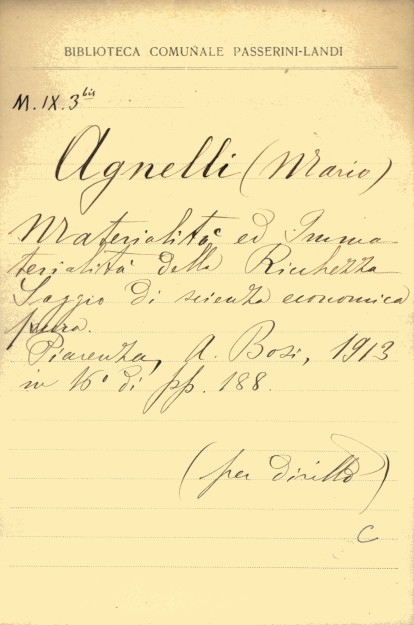 BIBLIOTECA COMUNALE PASSERINI-LANDI
M. IX. 3 bis
Agnelli (Mario)
Materialità ed Imma-
terialità della Ricchezza
Saggio di scienza economica
pura.
Piacenza, A. Bosi, 1913
in 16° di pp. 188.
(per diritto)
C